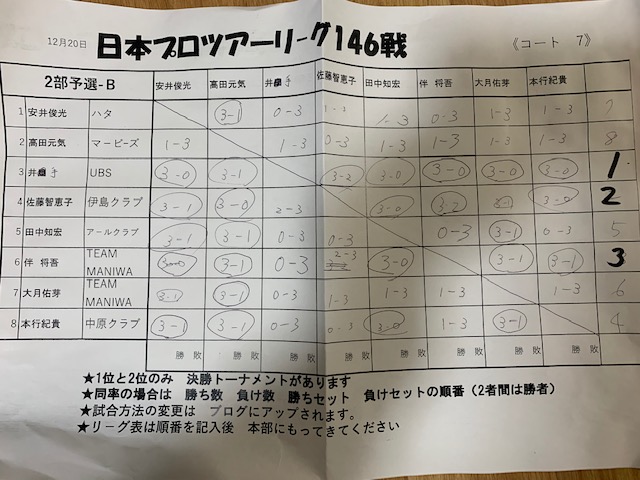 12月20日 日本プロツアーリーグ146戦 《コート 7》
2部予選-B 安井俊光 高田元気 井 手 佐藤智恵子 田中知宏 伴 将吾 大月佑芽 本行紀貴
1 安井俊光 ハタ 3-1 0-3 1-3 0-3 1-3 1-3 7
2 高田元気 マーピーズ 1-3 1-3 0-3 1-3 1-3 1-3 1-3 8
3 井 手 UBS 3-0 3-1 3-2 3-0 3-0 3-0 3-0 1
4 佐藤智恵子 伊島クラブ 3-1 3-0 2-3 3-0 3-2 3-1 3-0 2
5 田中知宏 アールクラブ 3-1 3-1 0-3 0-3 0-3 3-1 0-3 5
6 伴 将吾 TEAM MANIWA 3-0 3-1 0-3 2-3 3-0 3-1 3-1 3
7 大月佑芽 TEAM MANIWA 3-1 3-1 0-3 1-3 1-3 1-3 1-3 6
8 本行紀貴 中原クラブ 3-1 3-1 0-3 0-3 3-0 1-3 3-1 4
勝 敗 勝 敗 勝 敗 勝 敗 勝 敗 勝 敗 勝 敗 勝 敗
★1位と2位のみ 決勝トーナメントがあります
★同率の場合は 勝ち数 負け数 勝ちセット 負けセットの順番(2者間は勝者)
★試合方法の変更は ブログにアップされます。
★リーグ表は順番を記入後 本部にもってきてください